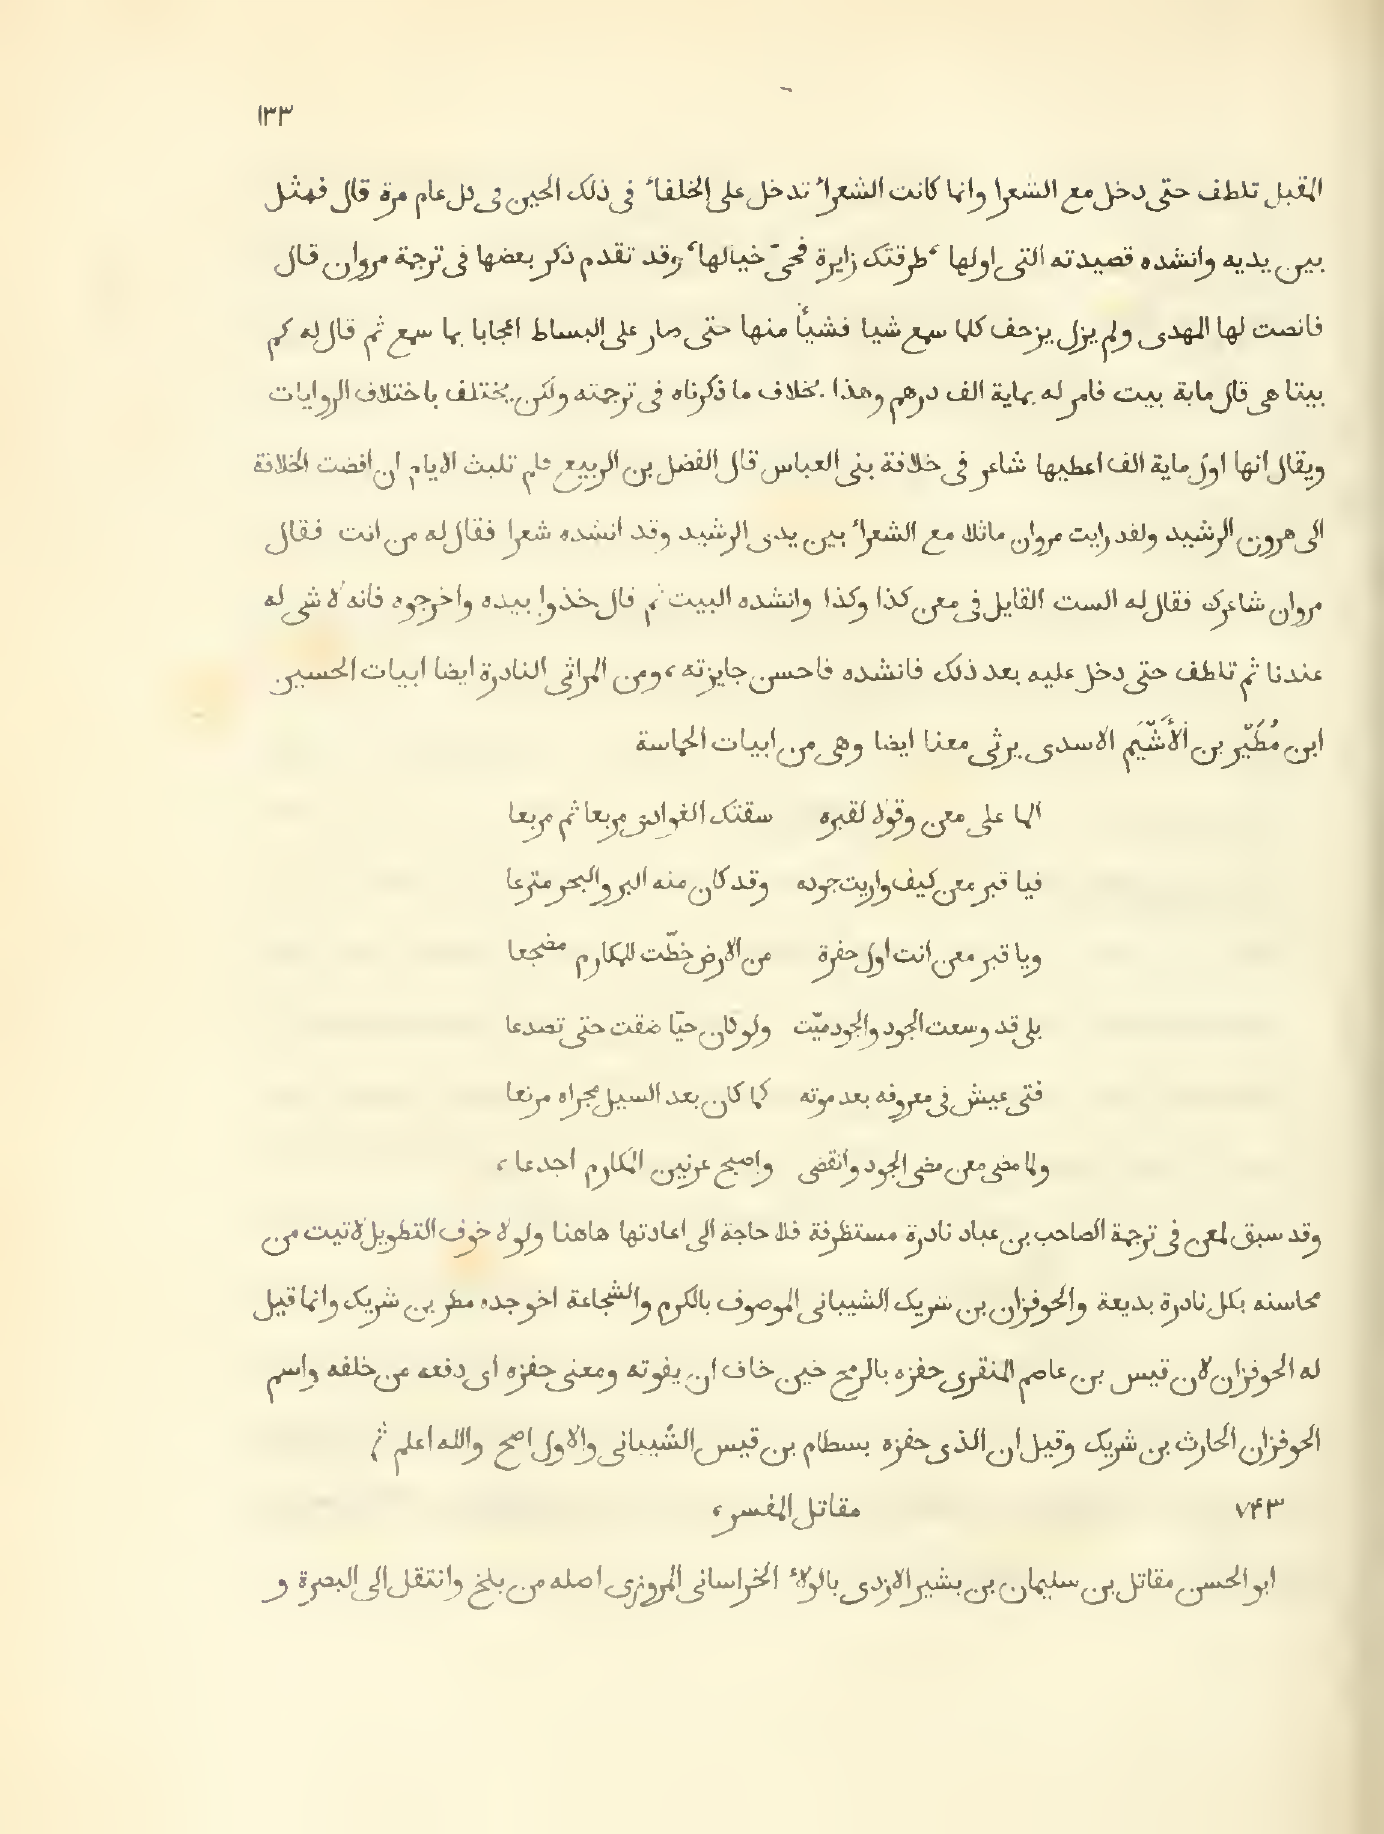 ١٣٣
المقبل تلطف حتى دخل مع الشعرا وانما كانت الشعراء تدخل على الخلفاء فى ذلك الحين فى كل عام مرة قال فمثل
بين يديه وانشده قصيدته التى اولها ، طرقتك زايرة فحىّ خيالها ، وقد تقدم ذكر بعضها فى ترجمة مروان قال
فانصت لها المهدى ولم يزل يزحف كلما سمع شيا فشيأ منها حتى صار على البساط اعجابا بما سمع ثم قال له كم
بيتا هى قال ماية بيت فامر له بماية الف درهم وهذا بخلاف ما ذكرناه فى ترجمته ولكن يختلف باختلاف الروايات
ويقال انها اول ماية الف اعطيها شاعر فى خلافة بنى العباس قال الفضل بن الربيع فلم تلبث الايام ان افضت الخلافة
الى هرون الرشيد ولقد رايت مروان ماثلا مع الشعراء بين يدى الرشيد وقد انشده شعرا فقال له من انت فقال
مروان شاعرك فقال له الست القايل فى معن كذا وكذا وانشده البيت ثم قال خذوا بيده واخرجوه فانه لا شى له
عندنا ثم تلطف حتى دخل عليه بعد ذلك فانشده فاحسن جايزته ، ومن المراثى النادرة ايضا ابيات الحسين
ابن مُطَيّر بن الأَشْيَم الاسدى يرثى معنا ايضا وهى من ابيات الحماسة
الما على معن وقولا لقبره سقتك الغوادى مربعا ثم مربعا
فيا قبر معن كيف واريت جوده وقد كان منه البر والبحر مترعا
ويا قبر معن انت اول حفرة من الارض خطّت للمكارم مضجعا
بلى قد وسعت الجود والجود ميّت ولو كان حيّا ضقت حتى تصدعا
فتى عيش فى معروفه بعد موته كما كان بعد السيل مجراه مرتعا
ولما مضى معن مضى الجود وانقضى واصبح عرنين المكارم اجدعا ،
وقد سبق لمعن فى ترجمة الصاحب بن عباد نادرة مستظرفة فلا حاجة الى اعادتها هاهنا ولولا خوف التطويل لاتيت من
محاسنه بكل نادرة بديعة والحوفزان بن شريك الشيبانى الموصوف بالكرم والشجاعة اخو جده مطر بن شريك وانما قيل
له الحوفزان لان قيس بن عاصم المنقرى حفزه بالرمح حين خاف ان يفوته ومعنى حفزه اى دفعه من خلفه واسم
الحوفزان الحارث بن شريك وقيل ان الذى حفزه بسطام بن قيس الشيبانى والاول اصح والله اعلم
٧۴٣ مقاتل المفسر ،
ابو الحسن مقاتل بن سليمان بن بشير الازدى بالولاء الخراسانى المروزى اصله من بلخ وانتقل الى البصرة و